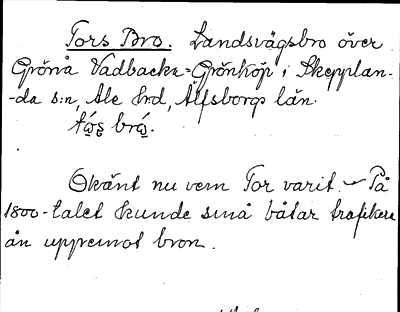 Tors Bro. Landsvägsbro över
Gröna Vadbacke-Grönköp i Skepplan-
-da s:n, Ale hrd, Älfsborgs län.
Okänt nu vem Tor varit. – På
1800-talet kunde små båtar trafikera
ån uppemot bron.